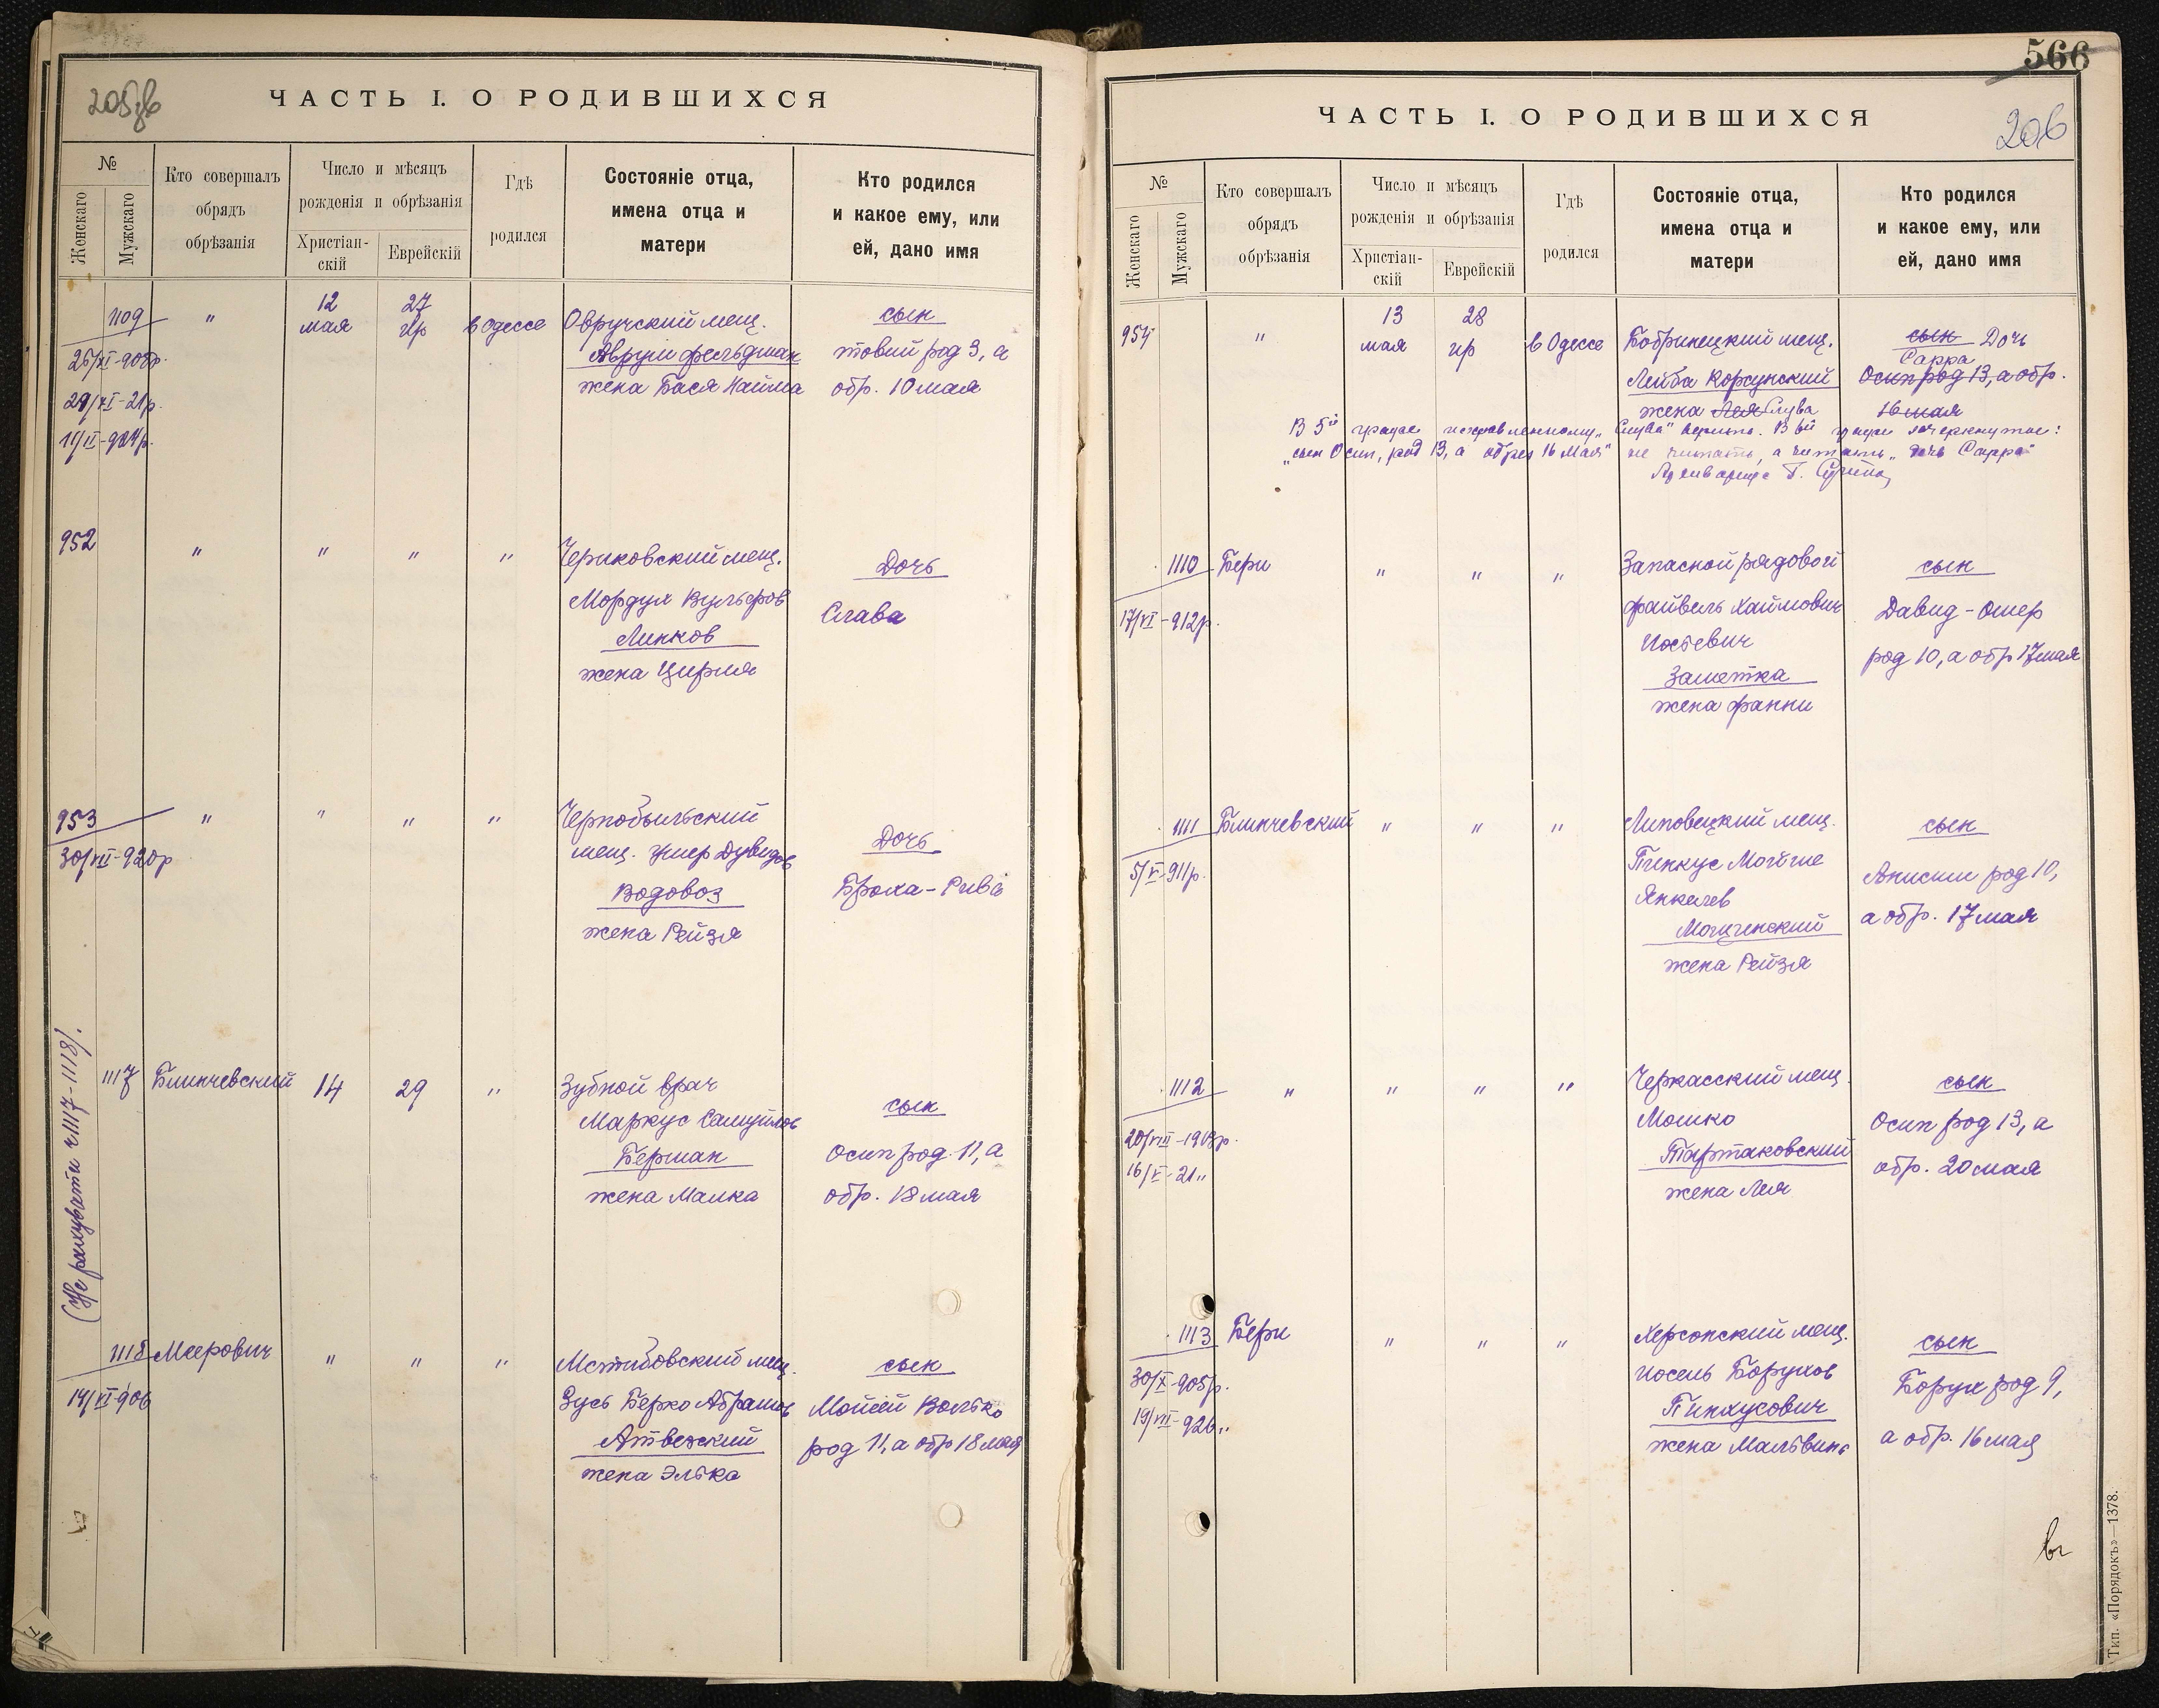 205 зв
ЧАСТЬ I. О РОДИВШИХСЯ
№
Женскаго
Мужскаго
Кто совершалъ
обрядъ
обрѣзанія
Число и мѣсяцъ
рожденія и обрѣзанія
Христіан-
скій
Еврейскій
Гдѣ
родился
Состояніе отца,
имена отца и
матери
Кто родился
и какое ему, или
ей, дано имя
1109 " 12 мая 27 ир в Одессе
Овручский мещ.
Аврум Фельдман
жена Бася Найма
сын
Товий род 3, а
обр. 10 мая
29/XI-21р.
11/II-924р.
952 " " " "
Чериковский мещ.
Мордух Вульфров
Линков
жена Цирля
Дочь
Слава
953 " " " "
30/VII-920р
Чернобыльский
мещ. Умер Дувидов
Водовоз
жена Рейзя
Дочь
Броха-Рива
(Не рахувати 1117-1118).
1117 Блинчевский 14 29 "
Зубной врач
Маркус Самуилов
Берман
жена Малка
сын
Осип род. 11, а
обр. 18 мая
1118 Меерович " " "
14/XI-906
Мстибовский мещ.
Зусь Берко Абрамов
Атвежский
жена Элька
сын
Мойсей Волько
род 11, а обр 18 мая
566
206
ЧАСТЬ I. О РОДИВШИХСЯ
№
Женскаго
Мужскаго
Кто совершалъ
обрядъ
обрѣзанія
Число и мѣсяцъ
рожденія и обрѣзанія
Христіан-
скій
Еврейскій
Гдѣ
родился
Состояніе отца,
имена отца и
матери
Кто родился
и какое ему, или
ей, дано имя
954 " 13 мая 28 ир в Одессе
Бобринецкий мещ.
Лейба Корсунский
жена Лея Слува
сын Дочь
Сарра
Осип род 13, а обр.
16 мая
В 5й графе исправленному "Слува" верить. В 6й графе зачеркнутое:
"сын Осип, род 13, а обрез 16 мая" не читать, а читать "дочь Сарра"
Архивариус Г.
1110 Бери " " "
17/VI-912р.
Запасной рядовой
Файвель Хаимович
Иосевич
Заметка
жена Фанни
сын
Давид-Ошер
род 10, а обр 17 мая
1111 Блинчевский " " "
5/V-911р.
Липовецкий мещ.
Пинкус Мойше
Янкелев
Мощинский
жена Рейзя
сын
Анисим род 10,
а обр. 17 мая
1112 " " " "
16/V-21 "
Черкасский мещ.
Мошко
Тартаковский
жена Лея
сын
Осип род 13, а
обр. 20 мая
1113 Бери " " "
30/X-905р.
19/VII-926 "
Херсонский мещ.
Иосель Борухов
Пинхусович
жена Мальвина
сын
Борух род 9,
а обр. 16 мая
Тип. «Порядокъ»—1378.